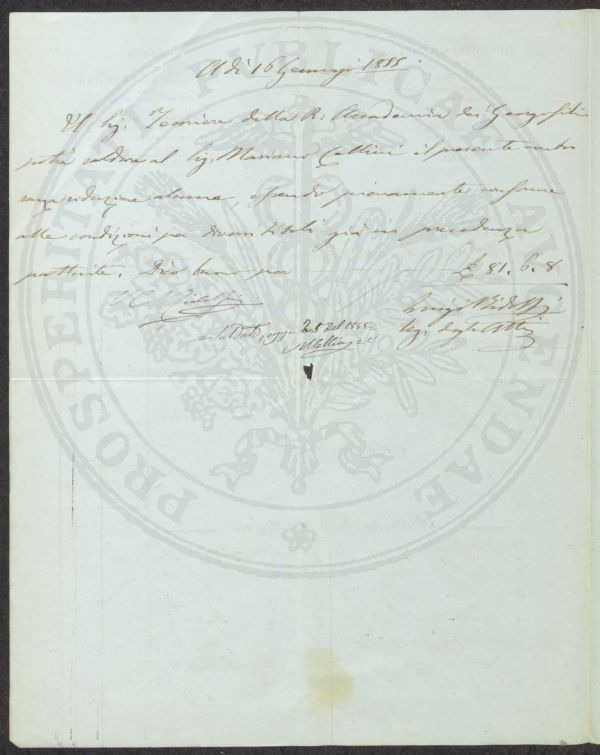 A dì 16 Gennajo 1855.
Il Sig. Tesoriere della R. Accademia dei Georgofili
potrà saldare al Sig. Mariano Cellini il presente conto
senza riduzione alcuna, essendo pienamente conforme
alle condizioni per diversi titoli già in precedenza
pattuite. Dico buono per £ 81. 6. 8
Luigi Ridolfi
Seg. degli Atti
C. Ridolfi
Saldato, oggi 1855
MCellini
PROSPERITATI PUBLICAE AUGENDAE